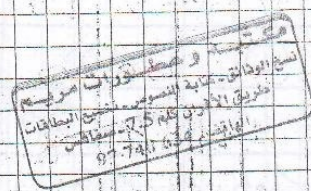 مكتبة و منشورات مريم
نسخ الوثائق - كتابة النصوص - تخريج البطاقات
طريق الأفران كلم 7.5 - صفاقس
الهاتف